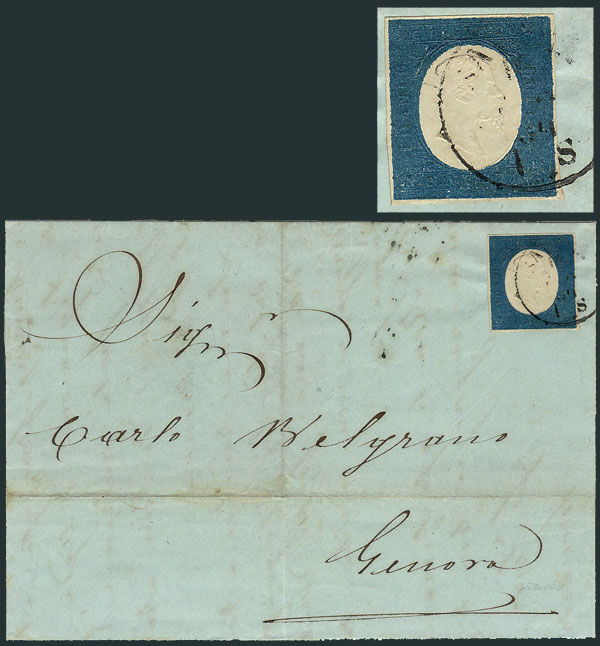 Sigr
Carlo Belgrano
Genova